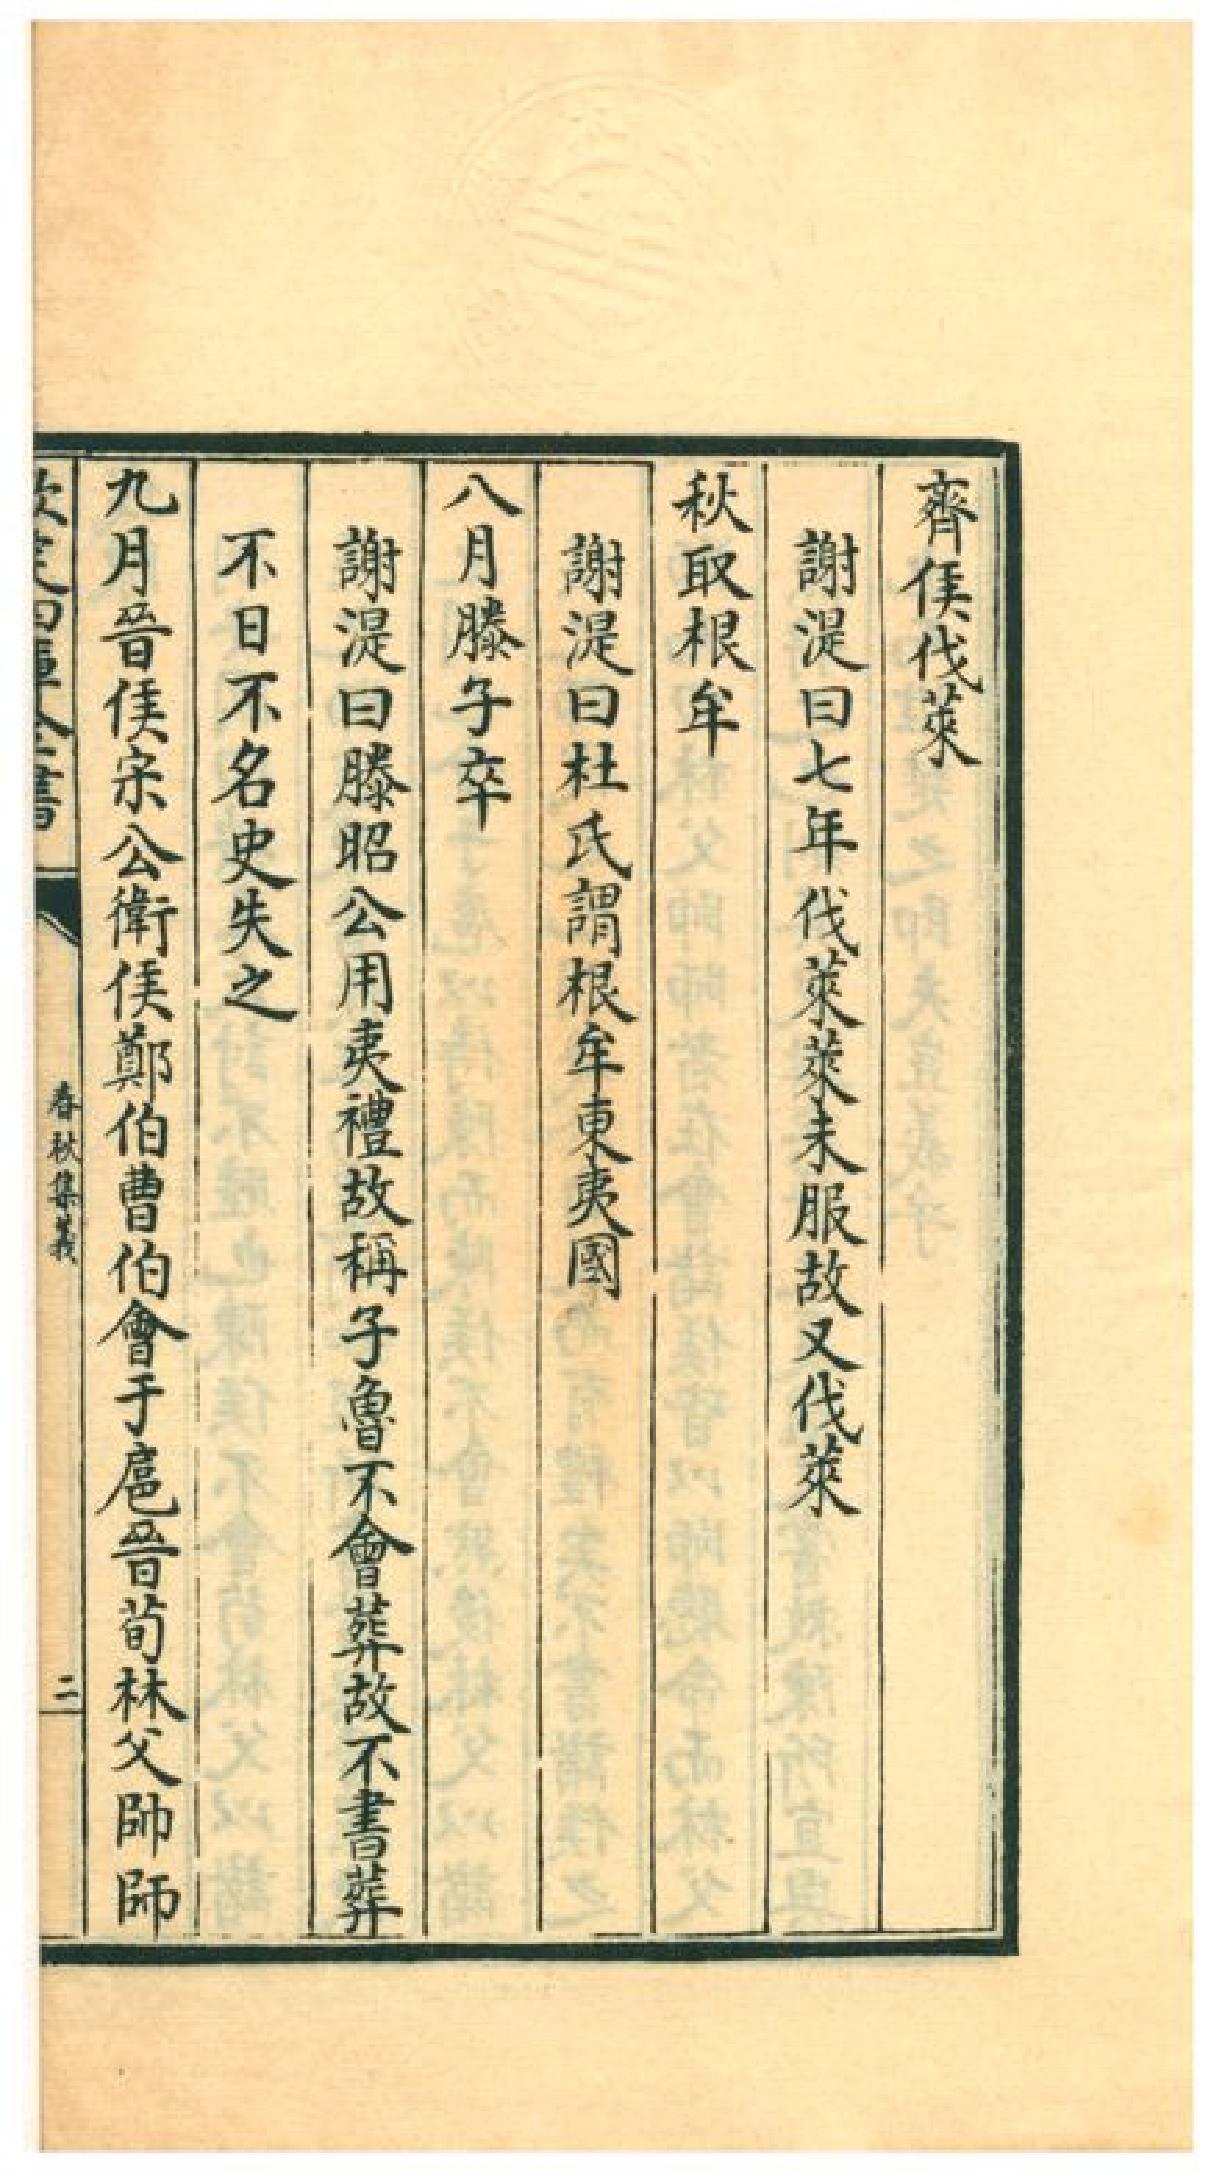 齊侯伐萊
謝湜曰七年伐萊萊未服故又伐萊
秋取根牟
謝湜曰杜氏謂根牟東夷國
八月滕子卒
謝湜曰滕昭公用夷禮故稱子魯不會葬故不書葬
不日不名史失之
九月晉侯宋公衛侯鄭伯曹伯會于扈晉荀林父帥師
欽定四庫全書
春秋集義
二